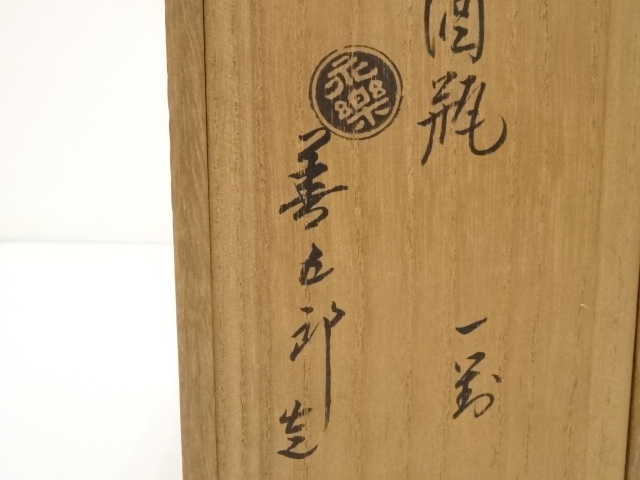 酒瓶 一對
永樂
善五郎 造